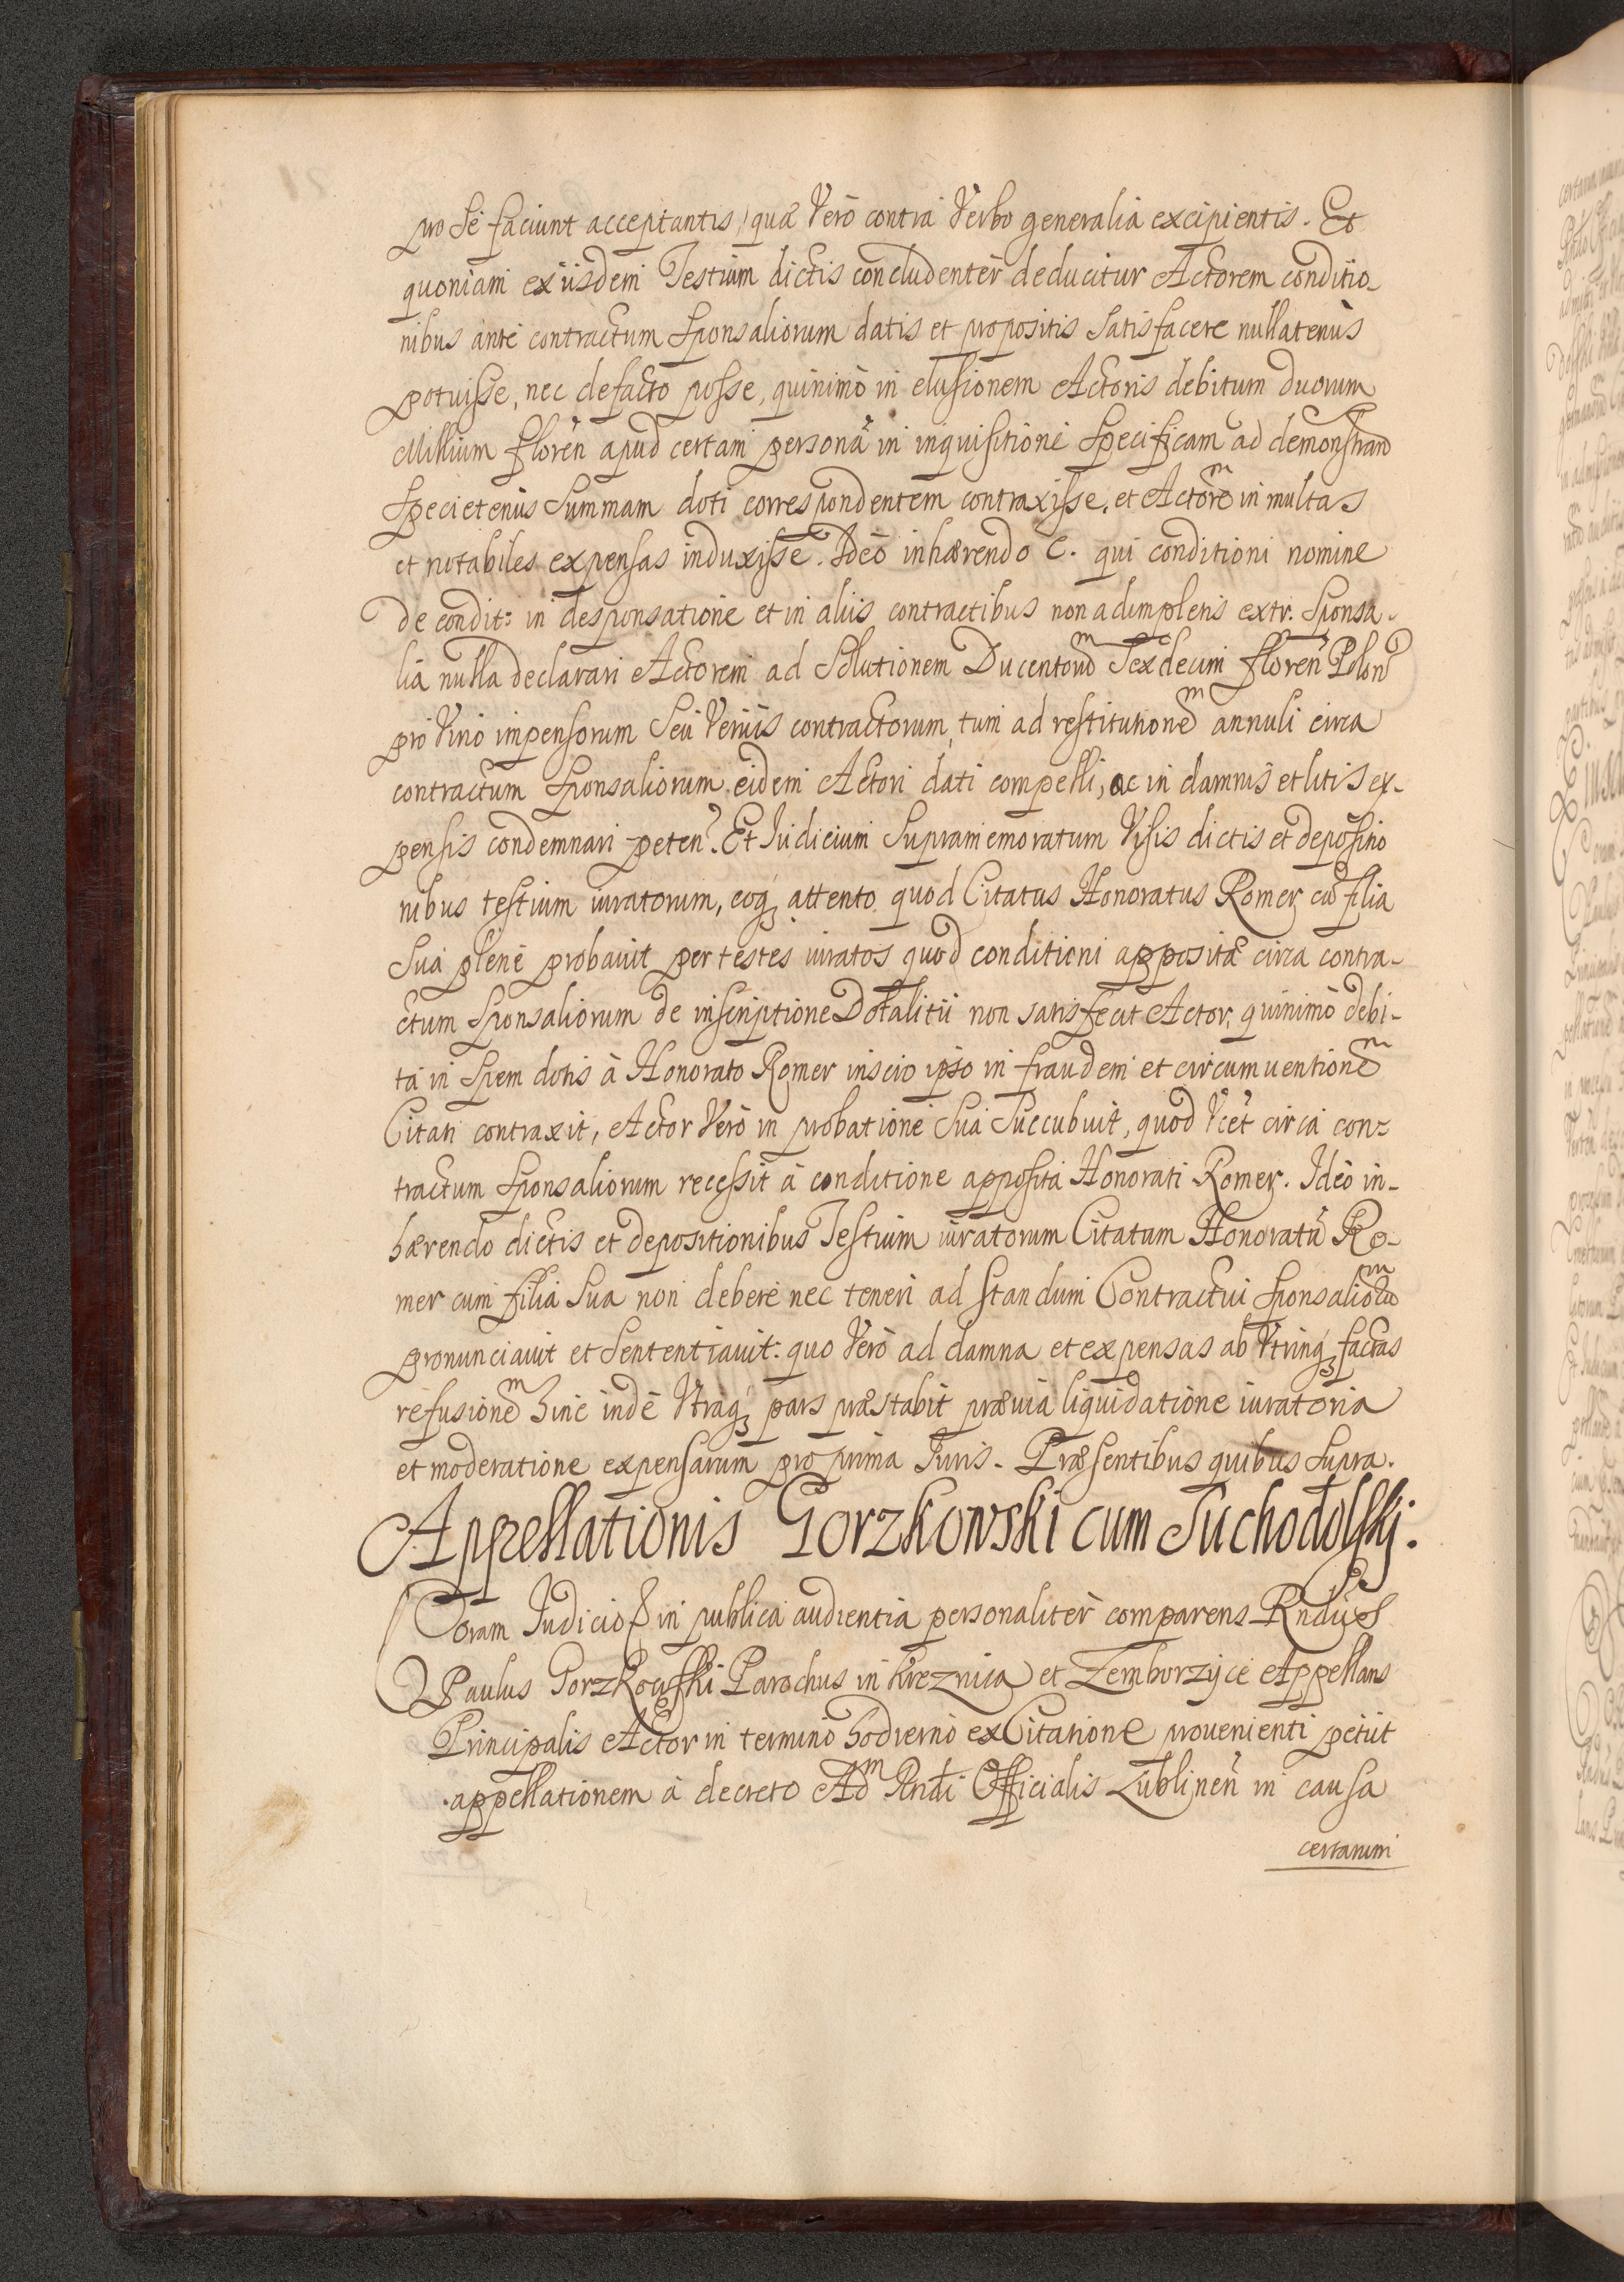 pro se faciunt acceptantis, quæ Verò contra Verbo generalia excipientis. Et
quoniam ex iisdem Testium dictis concludenter deducitur Actorem conditio-
nibus ante contractum Sponsaliorum datis et propositis Satisfacere nullatenùs
potuisse, nec defacto posse, quinimò in elusionem Actoris debitum duorum
Millium floreñ apud certam personã in inquisitione Specificam ad demonstrand
Specietenùs Summam doti correspondentem contraxisse, et Actorem in multas
et notabiles expensas induxisse. Ideò inhærendo C. qui conditioni nomine
De condit: in desponsatione et in aliis contractibus non adimpletis extr. Sponsa-
lia nulla declarari Actorem ad Solutionem Ducentorum Sexdecim floreñ Polon
pro Vino impensorum Seu Veriùs contractorum, tum ad restitutionem annuli circa
contractum Sponsaliorum eidem Actori dati compelli, ac in damnis et litis ex-
pensis condemnari peteñ. Et Iudicium Supramemoratum Visis dictis et depositio
nibus testium iuratorum, eoq; attento quod Citatus Honoratus Romer cũ filia
Sua plenè probauit per testes iuratos quod conditioni appositæ circa contra-
ctum Sponsaliorum de inscriptione Dotalitii non satisfecit Actor, quinimò debi-
ta in Spem dotis à Honorato Romer inscio ipso in fraudem et circumuentionem
Citati contraxit, Actor Verò in probatione Sua Succubuit, quod Vcet circa con-
tractum Sponsaliorum recessit à conditione apposita Honorati Romer. Ideò in-
hærendo dictis et depositionibus Testium iuratorum Citatum Honoratũ Ro-
mer cum filia Sua non debere nec teneri ad standum Contractui Sponsaliorum
pronunciauit et Sententiauit: quo Verò ad damna et expensas ab Vtrinq; factas
refusionem hinc indè Vtraq; pars præstabit præuia liquidatione iuratoria
et moderatione expensarum pro prima Iuris. Præsentibus quibus Supra.
Appellationis Gorzkowski cum Suchodolskj.
Coram Iudicio in publica audientia personaliter comparens Rndus
Paulus Gorzkowski Parochus in Kreznica et Zemborzyce Appellans
Principalis Actor in termino hodierno ex Citatione prouenienti petiit
appellationem à decreto Adm Rndi Officialis Lublineñ in causa
certarum